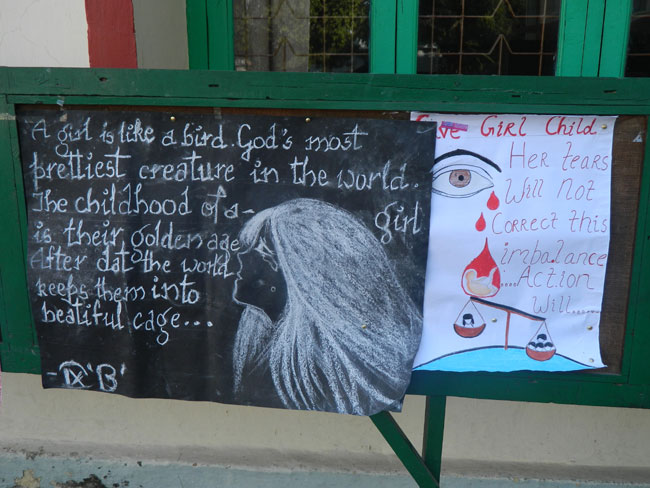 A girl is like a bird. God's most
prettiest creature in the world.
The childhood of a - girl
is their golden age
After dat the world
keeps them into
beatiful cage...
- IX 'B'
Save Girl Child
Her tears
Will Not
Correct this
imbalance
....Action
Will......